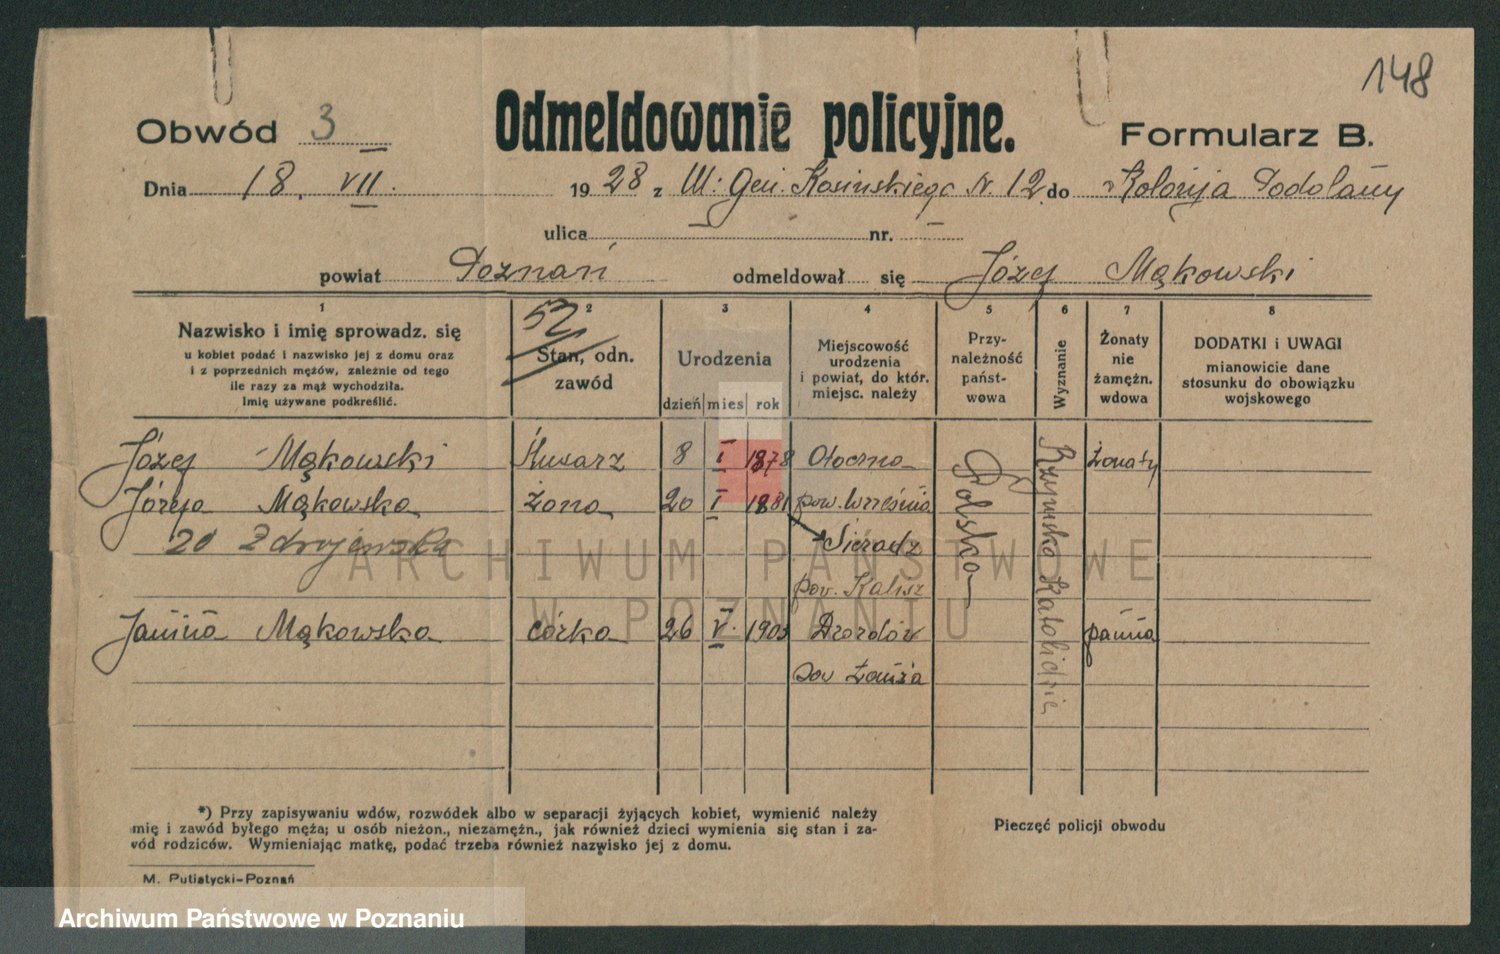 148
Obwód 3 Odmeldowanie policyjne. Formularz B.
Dnia 18. VII. 1928 z Ul: Gen. Kosińskiego N. 12 do Kolonja Podolany
ulica — nr. —
powiat Poznań odmeldował się Józef Mąkowski
1 2 3 4 5 6 7 8
52
Nazwisko i imię sprowadz. się
u kobiet podać i nazwisko jej z domu oraz
i z poprzednich mężów, zależnie od tego
ile razy za mąż wychodziła.
Imię używane podkreślić.
Stan, odn.
zawód
Urodzenia
dzień mies rok
Miejscowość
urodzenia
i powiat, do któr.
miejsc. należy
Przy-
należność
państ-
wowa
Wyznanie
Żonaty
nie
zamężn.
wdowa
DODATKI i UWAGI
mianowicie dane
stosunku do obowiązku
wojskowego
Józef Mąkowski 8 I 1878 Otoczna Polska Rzymsko Żonaty
Józefa Mąkowska żona 20 I 1881 pow. Września
20 Zdrojewska Sieradz
pow. Kalisz
Janina Mąkowska córka 26 V. 1903 panna
ARCHIWUM PAŃSTWOWE
W POZNANIU
*) Przy zapisywaniu wdów, rozwódek albo w separacji żyjących kobiet, wymienić należy
mię i zawód byłego męża; u osób nieżon., niezamężn., jak również dzieci wymienia się stan i za-
vód rodziców. Wymieniając matkę, podać trzeba również nazwisko jej z domu.
Pieczęć policji obwodu
M. Putiatycki-Poznań
Archiwum Państwowe w Poznaniu